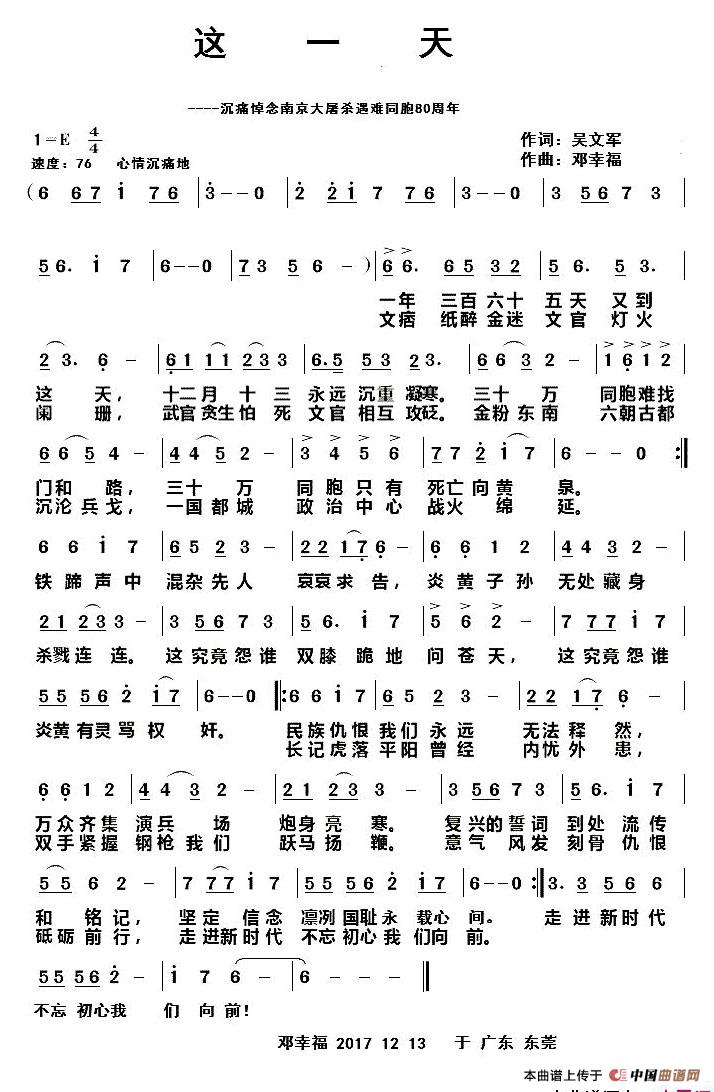 这 一 天
----沉痛悼念南京大屠杀遇难同胞80周年
1=E 4/4
作词：吴文军
速度：76 心情沉痛地
作曲：邓幸福
( 6 67 i 76 | 3--0 | 2 2i 7 76 | 3--0 | 3 56 7 3 |
56. i 7 | 6--0 | 73 56 - ) | 6 6. 65 32 | 56. 53. |
一年 三百六十 五天 又到
文痞 纸醉金迷 文官 灯火
2 3. 6 - | 61 11 223 3 | 6.5 53 223 | 66 3 2 - | 1 6 1 2 |
这 天， 十二月 十 三 永远 沉重 凝寒。 三十 万 同胞难找
阑 珊， 武官贪生怕 死 文官 相互 攻砭。 金粉 东南 六朝古都
66 5 4 - | 44 5 2 - | 3 4 5 6 | 7 7 2 i 7 | 6 - - 0 :||
门和 路， 三十 万 同 胞 只 有 死亡 向 黄 泉。
沉沦 兵 戈， 一国 都 城 政 治 中 心 战 火 绵 延。
6 6 i 7 | 65 2 3 - | 22 17 6 - | 6 6 1 2 | 44 3 2 - |
铁 蹄 声 中 混杂 先 人 哀哀 求 告， 炎 黄 子 孙 无处 藏 身
21 23 3 - | 3 56 7 3 | 56. i 7 | 5 6 2 - | 7 77 i 7 |
杀戮 连 连。 这 究竟 怨 谁 双膝 跪 地 问 苍 天， 这 究竟 怨 谁
55 56 2 i7 | 6--0 ||: 66 i 7 | 65 2 3 - | 22 17 6 - |
炎黄 有灵 骂 权 奸。 民族 仇 恨 我们 永 远 无法 释 然，
长记 虎 落 平阳 曾 经 内忧 外 患，
66 12 | 44 3 2 - | 22 2 3 - | 3 56 7 3 | 56. i 7 |
万众 齐集 演兵 场 炮身 亮 寒。 复兴的 誓词 到处 流传
双手 紧握 钢枪 我 们 跃马 扬 鞭。 意气 风发 刻骨 仇恨
55 6 2 - | 7 77 i 7 | 33 55 2 i7 | 6 - - 0 :|| 3. 3 56 6 |
和 铭 记， 坚定 信念 凛冽 国耻 永 载心 间。 走进 新时代
砥砺 前 行， 走进 新时代 不忘 初心 我 们向 前。
55 56 2 - | i 7 6 - | 6 - - - ||
不忘 初心 我 们 向 前！
邓幸福 2017 12 13 于 广东 东莞
本曲谱上传于 中国曲谱网